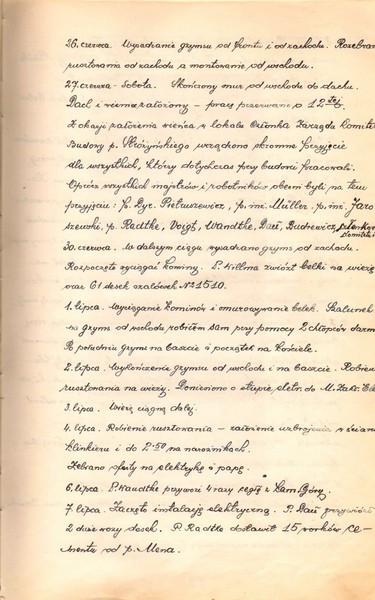 26. czerwca. Wysadzanie gzymsu od frontu i od zachodu. Rozebran
rusztowania od zachodu a montowanie od wschodu.
27. czerwca - Sobota. Skończony mur od wschodu do dachu.
Dach z wieńca założony - pracę przerwano o 12tej.
Z okazji założenia wieńca w lokalu Członka Zarządu Komitetu
Budowy p. urządzono skromne przyjęcie
dla wszystkich, którzy dotychczas przy budowie pracowali.
Oprócz wszystkich majstrów i robotników obecni byli na tem
przyjęciu: p. Dyr. Pietruszewicz, p. inż. Müller, p. inż. Jaro
szewski, p. Radtke, Voigt, Wandtke, Budrewicz,
30. czerwca. W dalszym ciągu wysadzano gzyms od zachodu.
Rozpoczęto wyciągać kominy. P. Killma zwiózł belki na wieżę
oraz 61 desek calówek №1510.
1. lipca. Wyciąganie kominów i omurowywanie belek. Szalunek
na gzyms od wschodu robiłem sam przy pomocy 2 chłopców darm
Po południu gzyms na baszcie i początek na kościele.
2. lipca. Wykończenie gzymsu od wschodu i na baszcie. Robieni
rusztowania na wieży. Doniesiono o słupie elektr. do M. Zakł.
3. lipca. Wieżę ciągną dalej.
4. lipca. Robienie rusztowania - założenie uzbrojenia w ścian
klinkieru i do 2.50 na narożnikach.
Zebrano oferty na elektrykę i papę.
6. lipca. P. Kaudtke przywozi 4 razy cegłę z Łam. Góry.
7. lipca. Zaczęto instalację elektryczną. P. przywiózł
2 duże wozy desek. P. Radtke dostawił 15 worków Ce-
mentu od p. Mena.